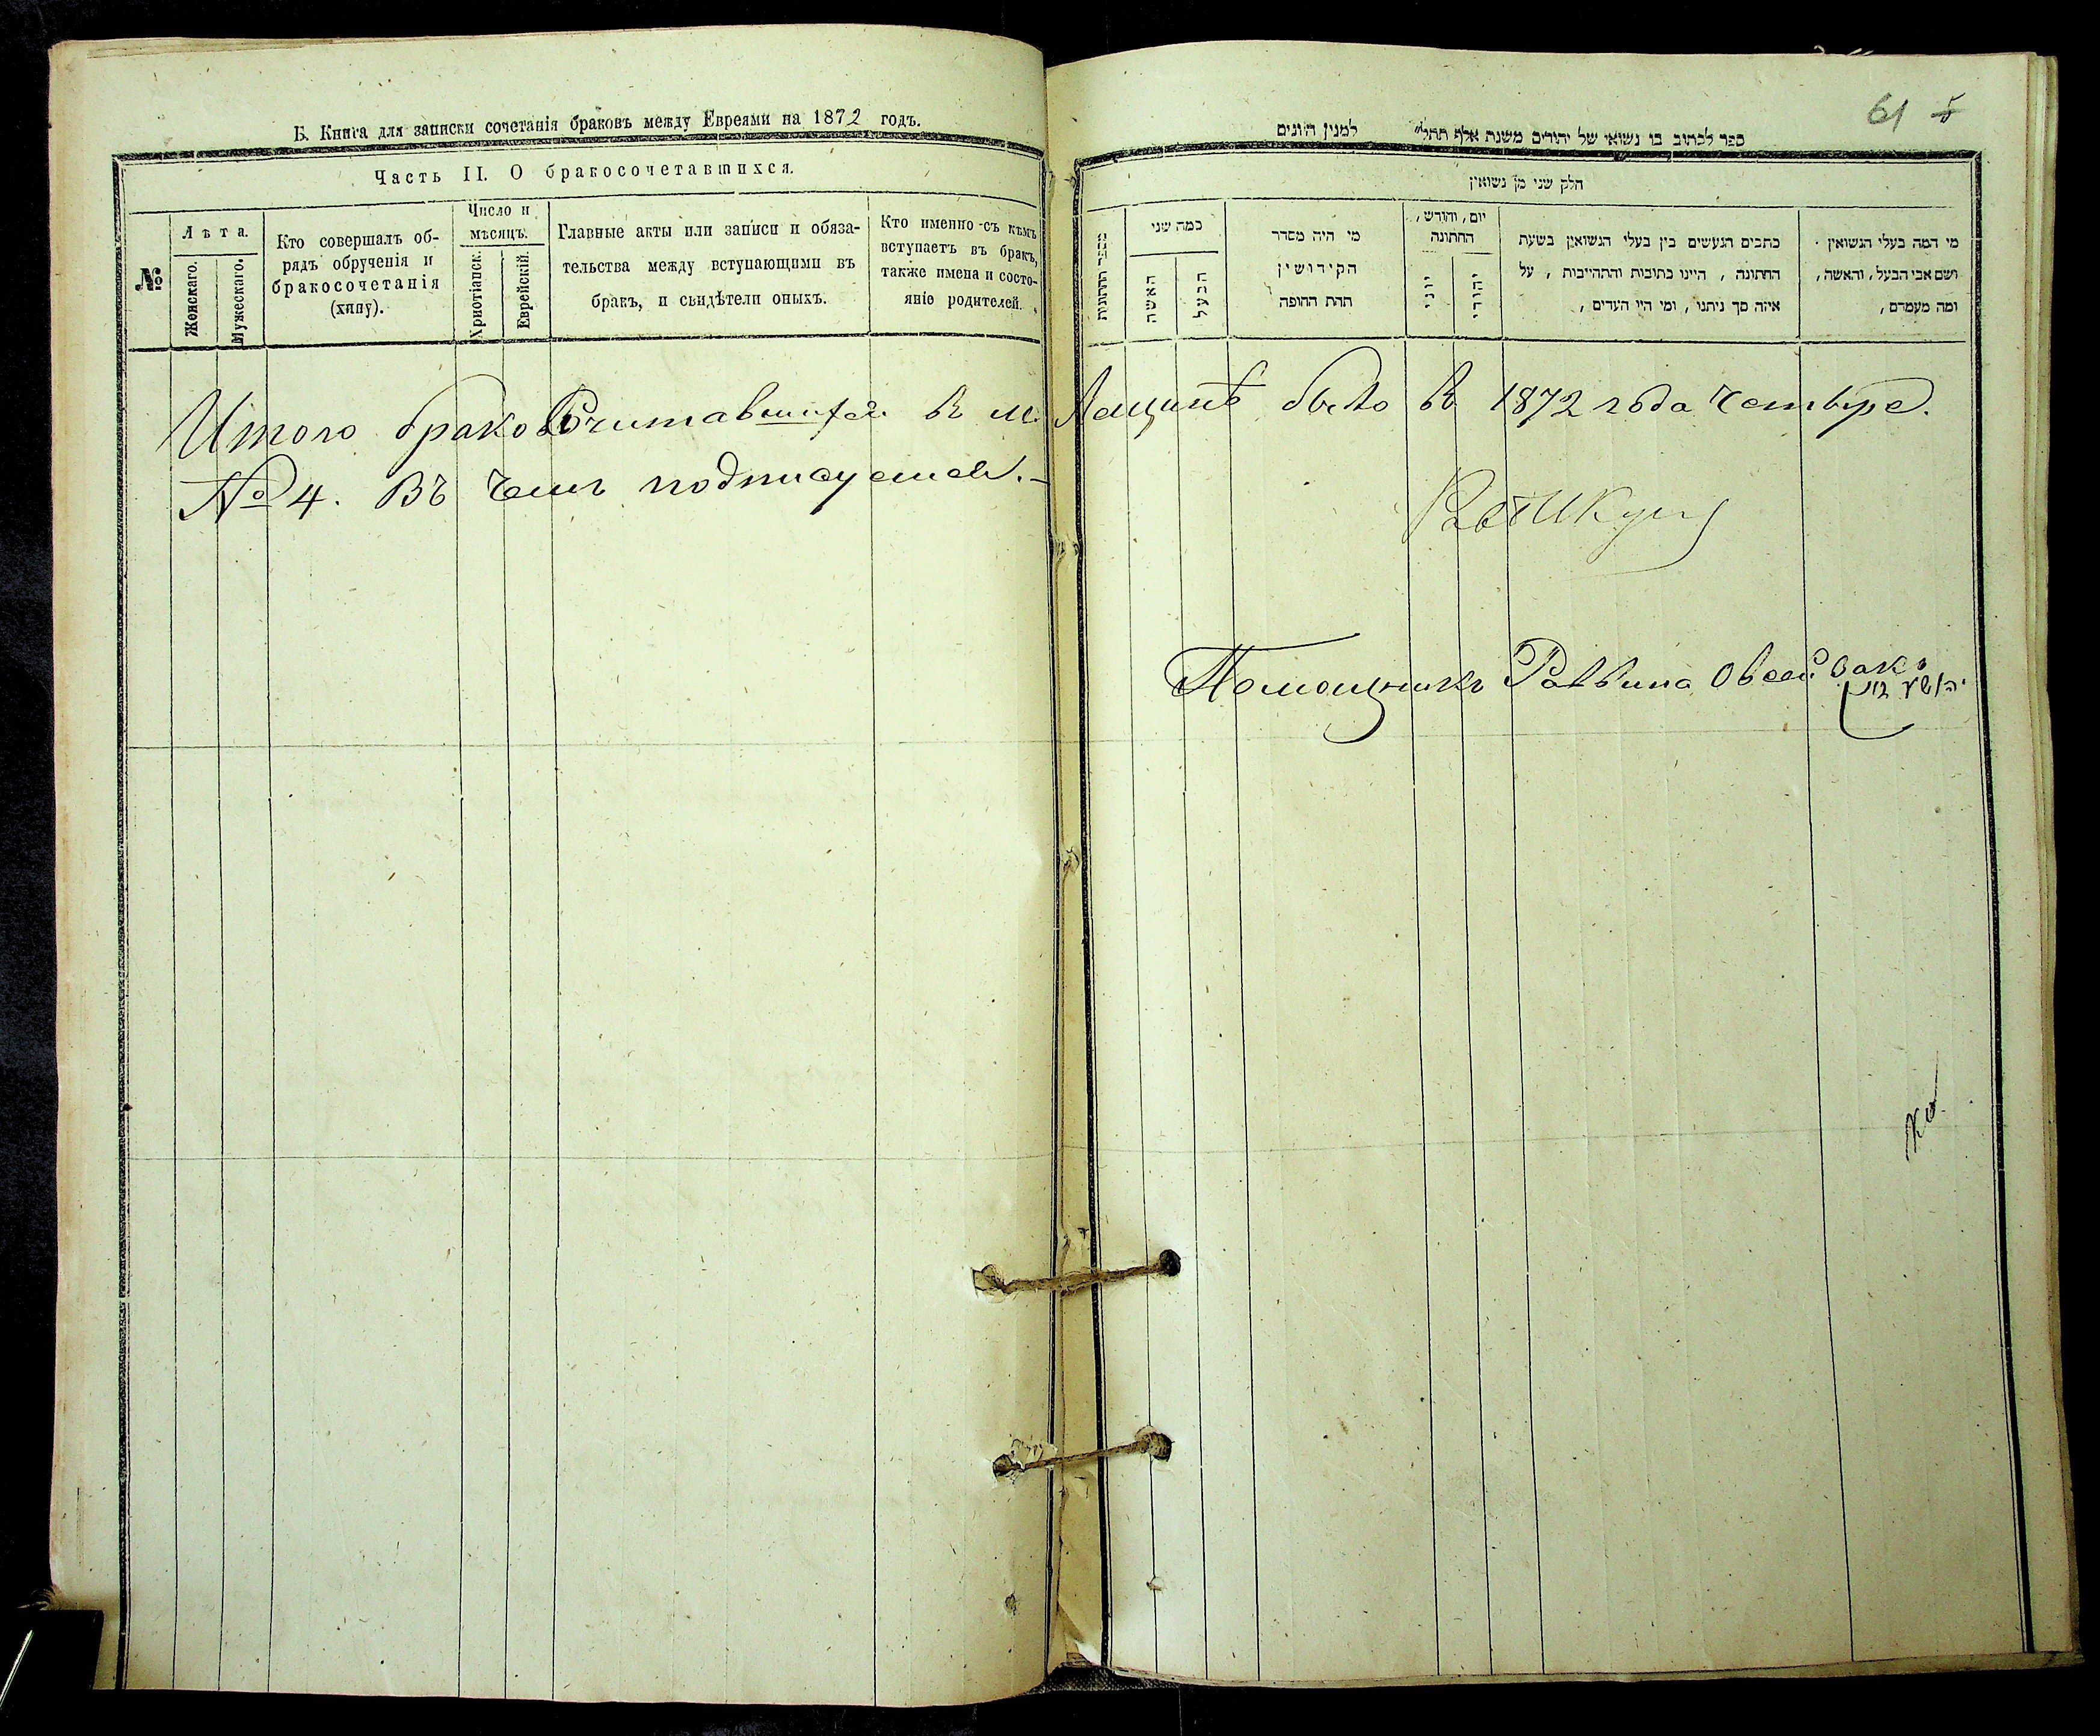 Б. Книга для записки сочетанія браковъ между Евреями на 1872 годъ.
Часть II. О бракосочетавшихся.
№
Лѣта.
Женскаго.
Мужескаго.
Кто совершалъ об-
рядъ обрученія и
бракосочетанія
(хипу).
Число и
мѣсяцъ.
Христіанск.
Еврейскій.
Главные акты или записи и обяза-
тельства между вступающими въ
бракъ, и свидѣтели оныхъ.
Кто именно съ кѣмъ
вступаетъ въ бракъ,
также имена и состо-
яніе родителей.
Итого браков Сочитавшихся в м.
№ 4. Въ чемъ подписуемся.-
61 5
ספר לכתוב בו נשואי של יהודים משנת אלף תתל״ למנין היונים
חלק שני מן נשואין
מספר החתונות
כמה שני
האשה
הבעל
מי היה מסדר
הקידושין
תחת החופה
יום, וחודש,
החתונה
יוני
יהודי
כתבים הנעשים בין בעלי הנשואין בשעת
החתונה, היינו כתובות והתחייבות, על
איזה סך ניתנו, ומי היו העדים,
מי המה בעלי הנשואין
ושם אבי הבעל, והאשה,
ומה מעמדם,
было в 1872 года Четыре.
Помощникъ Раввина Овсей Закъ
יהושע זאק